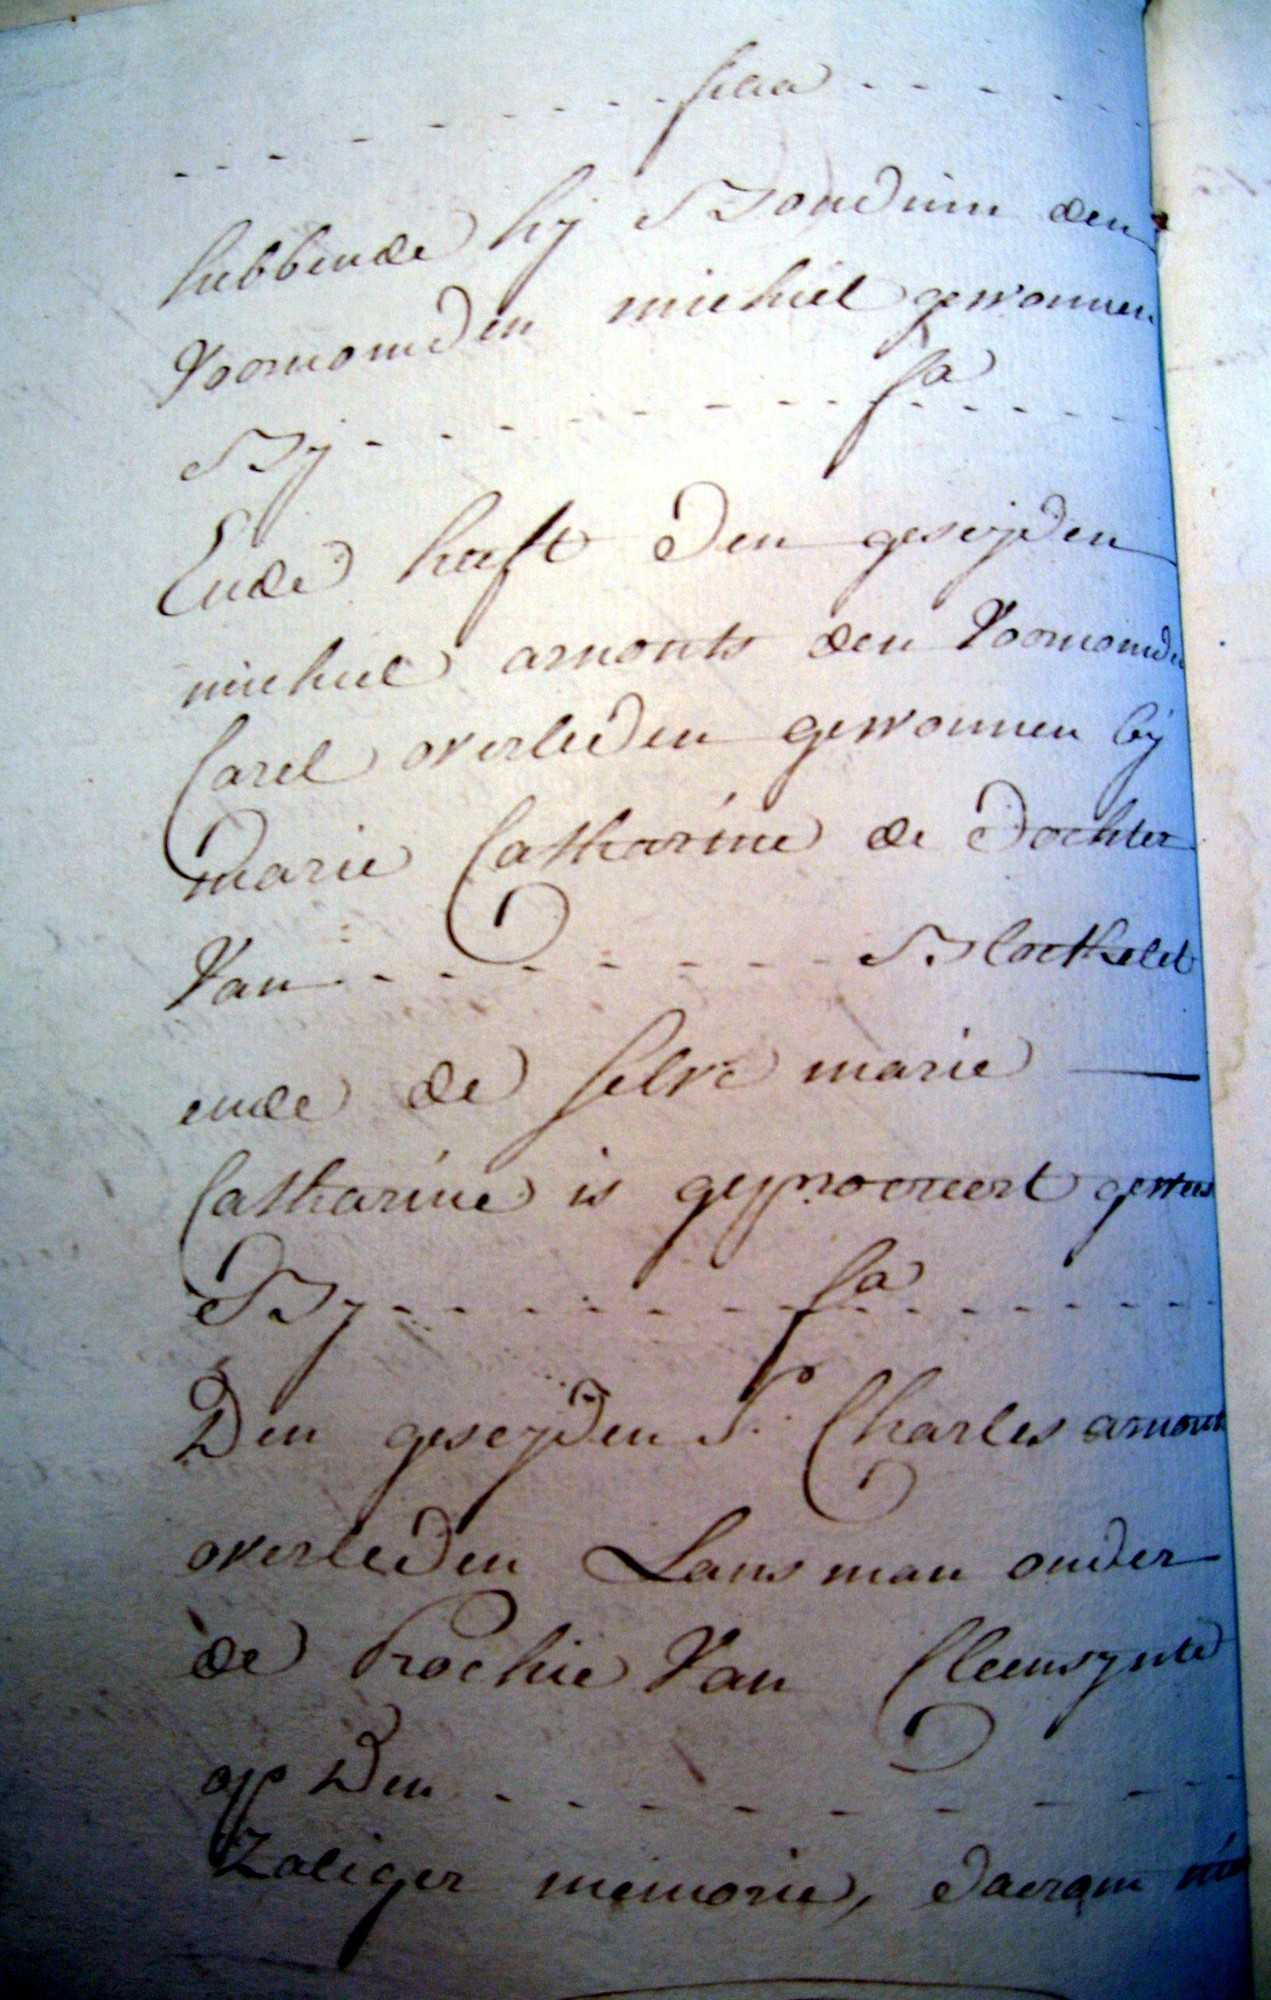 - - - - - - - - - fiaa - - - - -
hebbende hij Bouduin den
Voornomden michiel gewonnen
By - - - - - - - - fa - - - -
Ende heeft den geseijden
michiel arnouts den Voornomden
Carel overleden gewonnen bij
marie Catharine de dochter
Van - - - - - - - - Blockelet
ende de selve marie —
Catharine is geprocreert gewees
By - - - - - - - fa - - - - - -
Den geseijden Sr. Charles arnout
overleden Lansman onder
de Prochie Van Cleensynte
op den - - - - - - - - -
Zaliger memorie, daeram